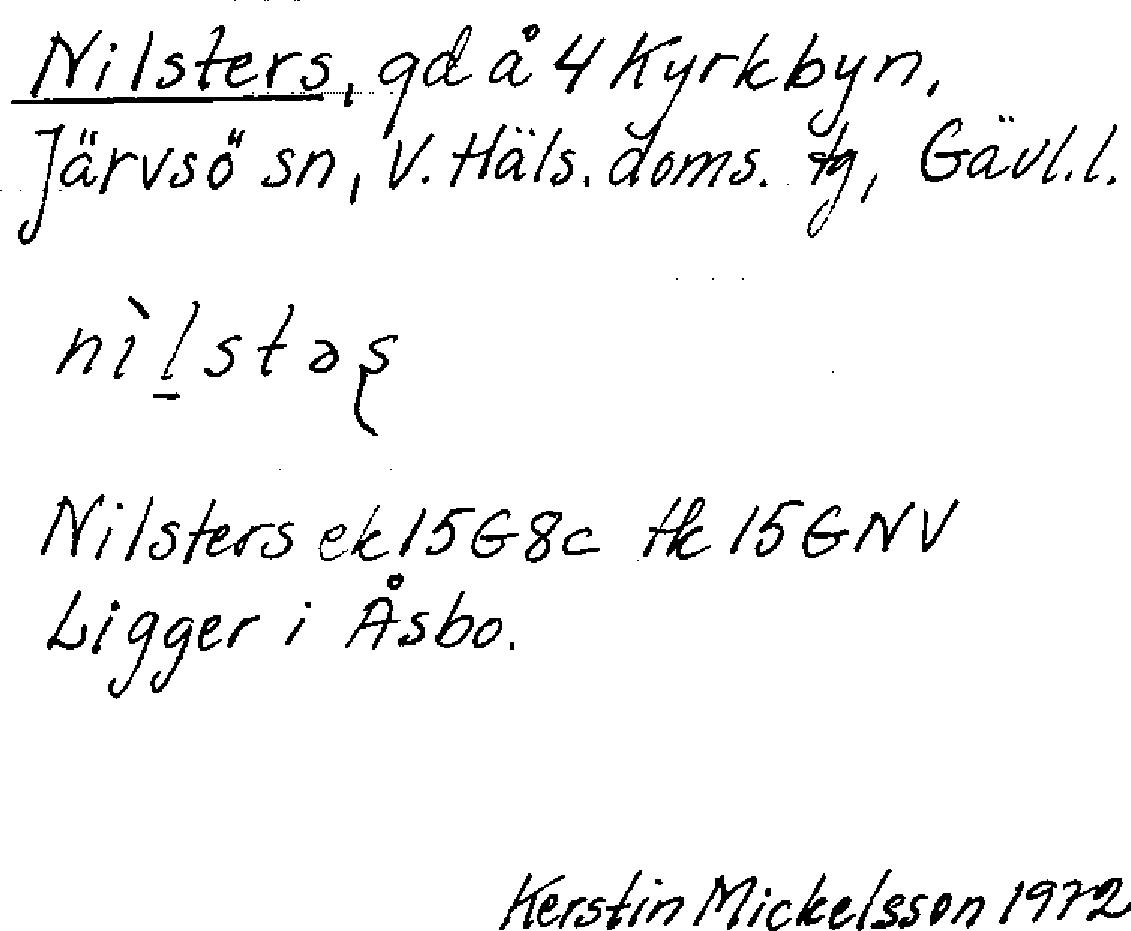 Nilsters, gd å 4 Kyrkbyn,
Järvsö sn, V. Häls. doms. tg, Gävl.l.
nìl̠stəʂ
Nilsters ek 15G8c tk 15GNV
Ligger i Åsbo.
Kerstin Mickelsson 1972